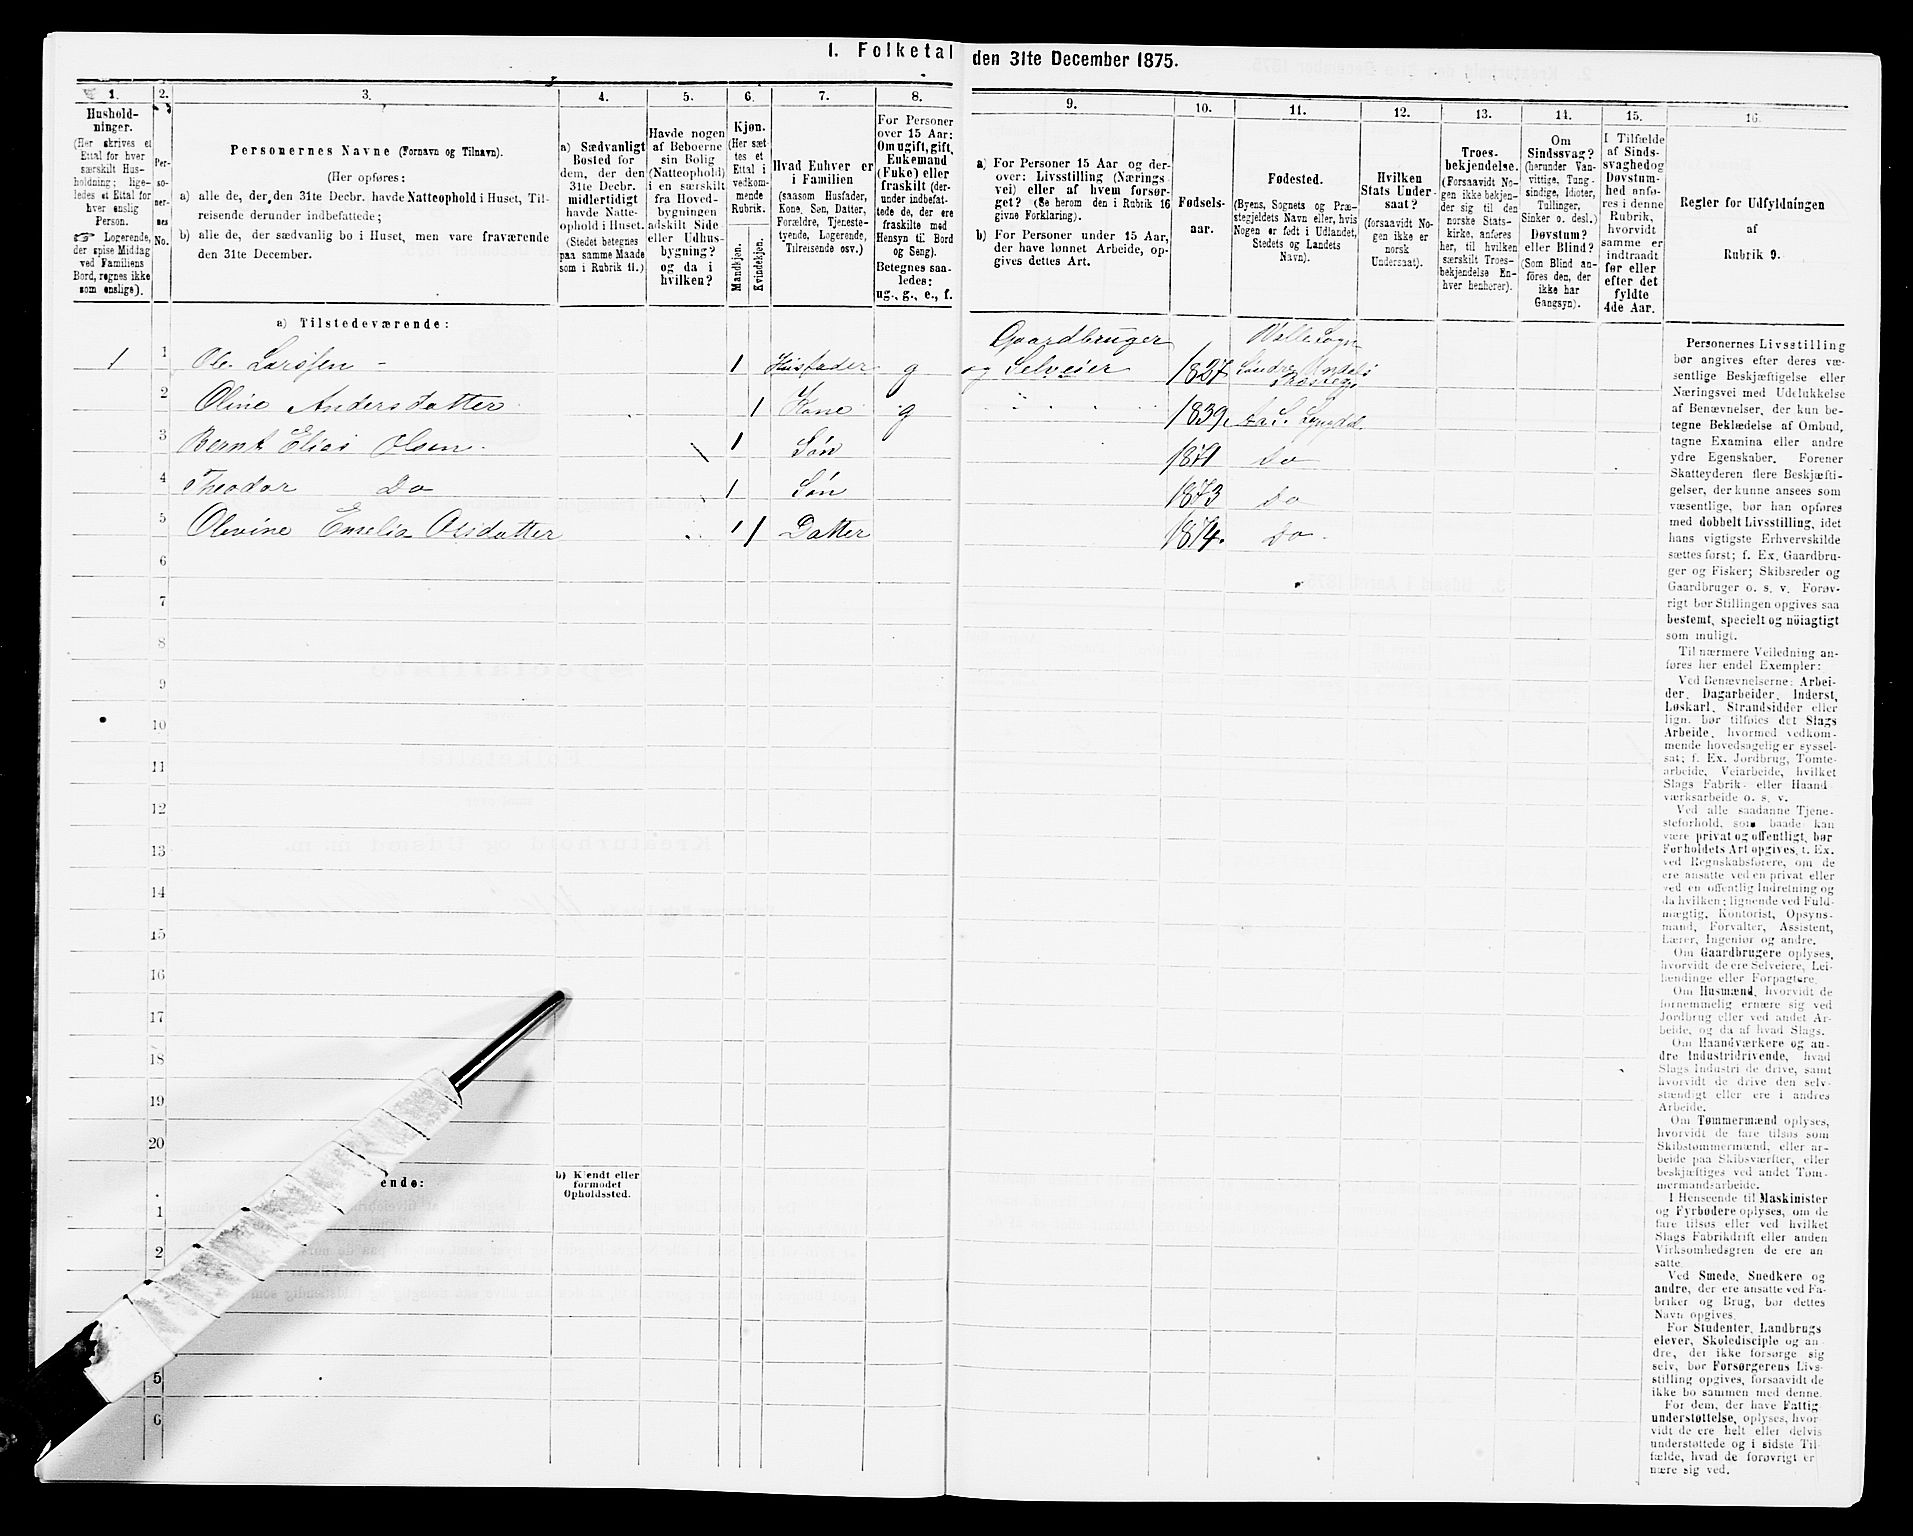 1. Folketal den 31te December 1875.
1.
Hushold-
ninger.
(Her skrives et
Ettal for hver
særskilt Hus-
holdning; lige-
ledes et Ettal for
hver enslig
Person.
☞ Logerende,
der spise Middag
ved Familiens
Bord, regnes ikke
som enslige).
2.
Per-
so-
ner-
nes
No.
3.
Personernes Navne (Fornavn og Tilnavn).
(Her opføres:
a) alle de, der den 31te Decbr. havde Natteophold i Huset, Til-
reisende derunder indbefattede;
b) alle de, der sædvanlig bo i Huset, men vare fraværende
den 31te December.
4.
a) Sædvanligt
Bosted for
dem, der den
31te Decbr.
midlertidigt
havde Natte-
ophold i Huset.
(Stedet betegnes
paa samme Maade
som i Rubrik 11.)
5.
Havde nogen
af Beboerne
sin Bolig
(Natteophold)
i en særskilt
fra Hoved-
bygningen
adskilt Side
eller Udhus-
bygning?
og da i
hvilken?
6.
Kjøn.
(Her sæt-
tes et
Ettal i
vedkom-
mende
Rubrik.
Mandkjøn.
Kvindekjøn.
7.
Hvad Enhver er
i Familien
(saasom Husfader,
Kone, Søn, Datter,
Forældre, Tjeneste-
tyende, Logerende,
Tilreisende osv.)
8.
For Personer
over 15 Aar:
Om ugift, gift,
Enkemand
(Enke) eller
fraskilt (der-
under indbefat-
tede de, der ere
fraskilte med
Hensyn til Bord
og Seng).
Betegnes saa-
ledes:
ug., g., e., f.
9.
a) For Personer 15 Aar og der-
over: Livsstilling (Nærings-
vei) eller af hvem forsør-
get? (Se herom den i Rubrik 16
givne Forklaring).
b) For Personer under 15 Aar,
der have lønnet Arbeide, op-
gives dettes Art.
10.
Fødsels-
aar.
11.
Fødested.
(Byens, Sognets og Præ-
stegjeldets Navn eller, hvis
Nogen er født i Udlandet,
Stedets og Landets
Navn).
12.
Hvilken
Stats Under-
saat?
(forsaavidt No-
gen ikke er
norsk
Undersaat).
13.
Troes-
bekjendelse.
(Forsaavidt No-
gen ikke bekjen-
der sig til den
norske Stats-
kirke, anføres
her, til hvilken
særskilt Troes-
bekjendelse En-
hver henhører).
14.
Om
Sindssvag?
(herunder Van-
vittige, Tung-
sindige, Idioter,
Tullinger,
Sinker o. desl.)
Døvstum?
eller Blind?
(Som Blind an-
føres den, der
ikke har
Gangsyn).
15.
I Tilfælde
af Sinds-
svaghed og
Døvstum-
hed anfø-
res i denne
Rubrik,
hvorvidt
samme er
indtraadt
før eller
efter det
fyldte
4de Aar.
16.
Regler for Udfyldningen
af
Rubrik 9.
a) Tilstedeværende:
1 1 Ole Larssen - 1 Husfader g Gaardbruger og Selveier 1827 Valle Sogn
2 Oline Andersdatter 1 Kone g 1839.
3 Bernt Elias Olsen 1 Søn 1871 Do
4 Theodor Do 1 Søn 1873 Do
5 Olevine Emelia Olsdatter 1 1 Datter 1874. Do
6
7
8
9
10
11
12
13
14
15
16
17
18
19
20
ende:
b) Kjendt eller
formodet
Opholdssted.
1
2
5
6
Personernes Livsstilling
bør angives efter deres væ-
sentlige Beskjæftigelse eller
Næringsvei med Udelukkelse
af Benævnelser, der kun be-
tegne Beklædelse af Ombud,
tagne Examina eller andre
ydre Egenskaber. Forener
Skatteyderen flere Beskjæfti-
gelser, der kunne ansees som
væsentlige, bør han opføres
med dobbelt Livsstilling, idet
hans vigtigste Erhvervskilde
sættes først; f. Ex. Gaardbru-
ger og Fisker; Skibsreder og
Gaardbruger o. s. v. Forøv-
rigt bør Stillingen opgives saa
bestemt, specielt og nöiagtigt
som muligt.
Til nærmere Veiledning an-
føres her endel Exempler:
Ved Benævnelserne: Arbei-
der, Dagarbeider, Inderst,
Løskarl, Strandsidder eller
lign. bør tilføies det Slags
Arbeide, hvormed vedkom-
mende hovedsagelig er syssel-
sat; f. Ex. Jordbrug, Tomte-
arbeide, Veiarbeide, hvilket
Slags Fabrik- eller Haand-
værksarbeide o. s. v.
Ved alle saadanne Tjene-
steforhold, som baade kan
være privat og offentligt, bør
Forholdets Art opgives, t. Ex.
ved Regnskabsførere, om de
ere ansatte ved en privat eller
ved en offentlig Indretning og
da hvilken; lignende ved Fuld-
mægtig, Kontorist, Opsyns-
mand, Forvalter, Assistent,
Lærer, Ingeniør og andre.
Om Gaardbrugere oplyses,
hvorvidt de ere Selveiere, Lei-
lændinge eller Forpagtere.
Om Husmænd, hvorvidt de
fornemmelig ernære sig ved
Jordbrug eller ved andet Ar-
beide, og da af hvad Slags.
Om Haandværkere og an-
dre Industridrivende, hvad
Slags Industri de drive, samt
hvorvidt de drive den selv-
stændigt eller ere i andres
Arbeide.
Om Tømmermænd oplyses,
hvorvidt de fare tilsøs som
Skibstømmermænd, eller ar-
beide paa Skibsværfter, eller
beskjæftiges ved andet Tøm-
mermandsarbeide.
I Henseende til Maskinister
og Fyrbødere oplyses, om de
fare tilsøs eller ved hvilket
Slags Fabrikdrift eller anden
Virksomhedsgren de ere an-
satte.
Ved Smede, Snedkere og
andre, der ere ansatte ved Fa-
briker og Brug, bør dettes
Navn opgives.
For Studenter, Landbrugs-
elever, Skoledisciple og an-
dre, der ikke forsørge sig
selv, bør Forsørgerens Livs-
stilling opgives, forsaavidt de
ikke bo sammen med denne.
For dem, der have Fattig-
understøttelse, oplyses, hvor-
vidt de ere helt eller delvis
understøttede og i sidste Til-
fælde, hvad de forøvrigt er-
nære sig ved.